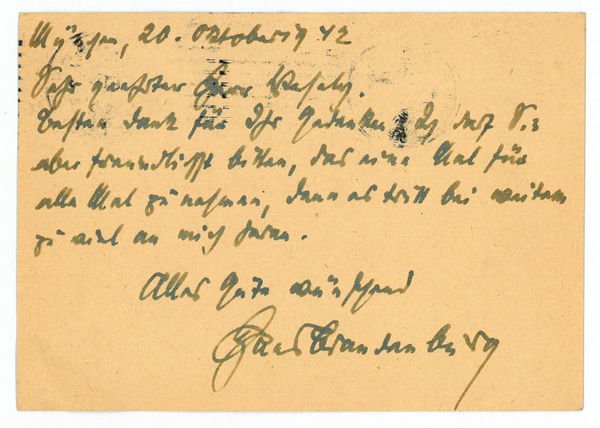 München, 20. Oktober 1942
Sehr geehrter Herr Wesely.
Besten Dank für Ihr Gedenken. Ich darf Sie
aber freundlichst bitten, das eine Mal für
alle Mal zu nehmen, denn es tritt bei weitem
zu viel an mich heran.
Alles Gute wünschend
Hans Brandenburg